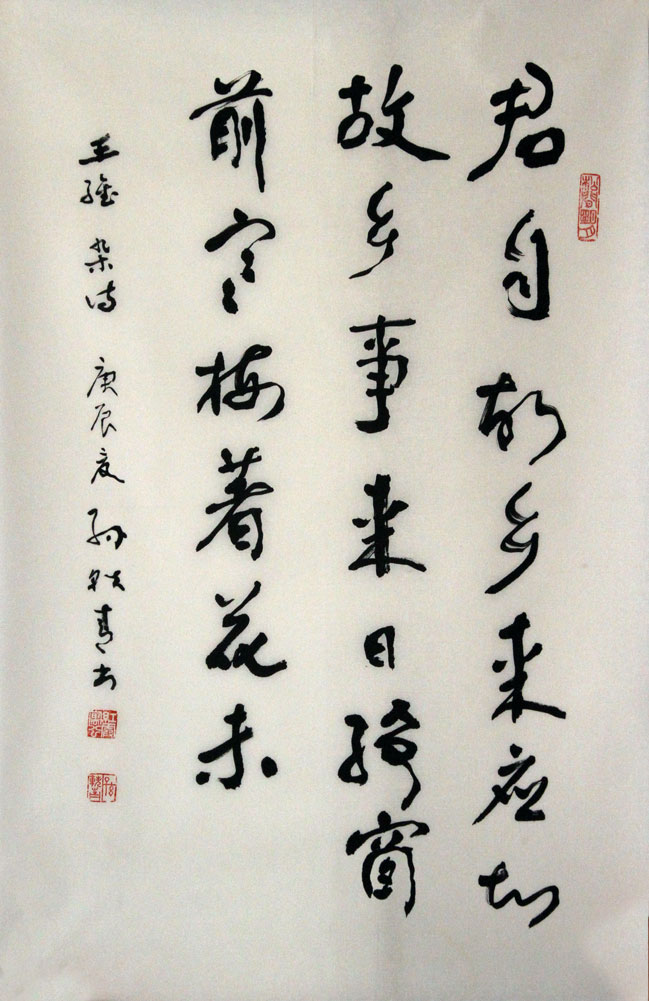 君自故乡来应知
故乡事来日绮窗
前寒梅着花未
王维杂诗 庚辰夏 孙轶青书